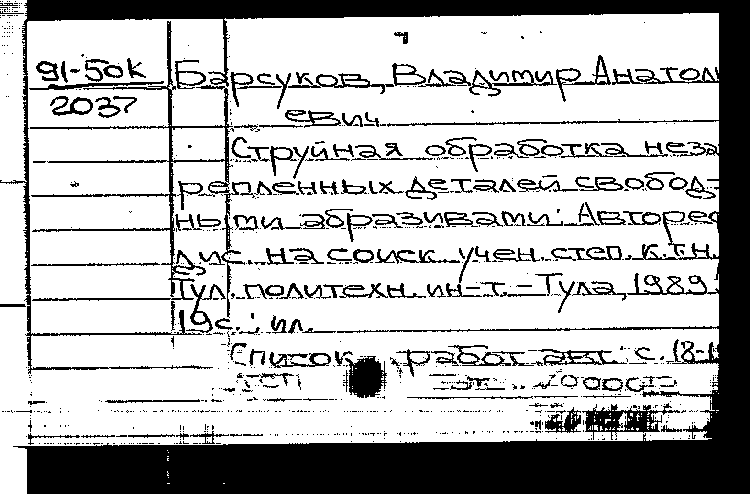 91-50к Барсуков, Владимир Анатоль
2037 евич
Струйная обработка неза
репленных деталей свобод-
ными абразивами: Автореф
дис. на соиск. учен. степ. к.т.н.
Тул. политехн. ин-т. - Тула, 1989.
19с.: ил.
Список работ авт.: с. 18-1